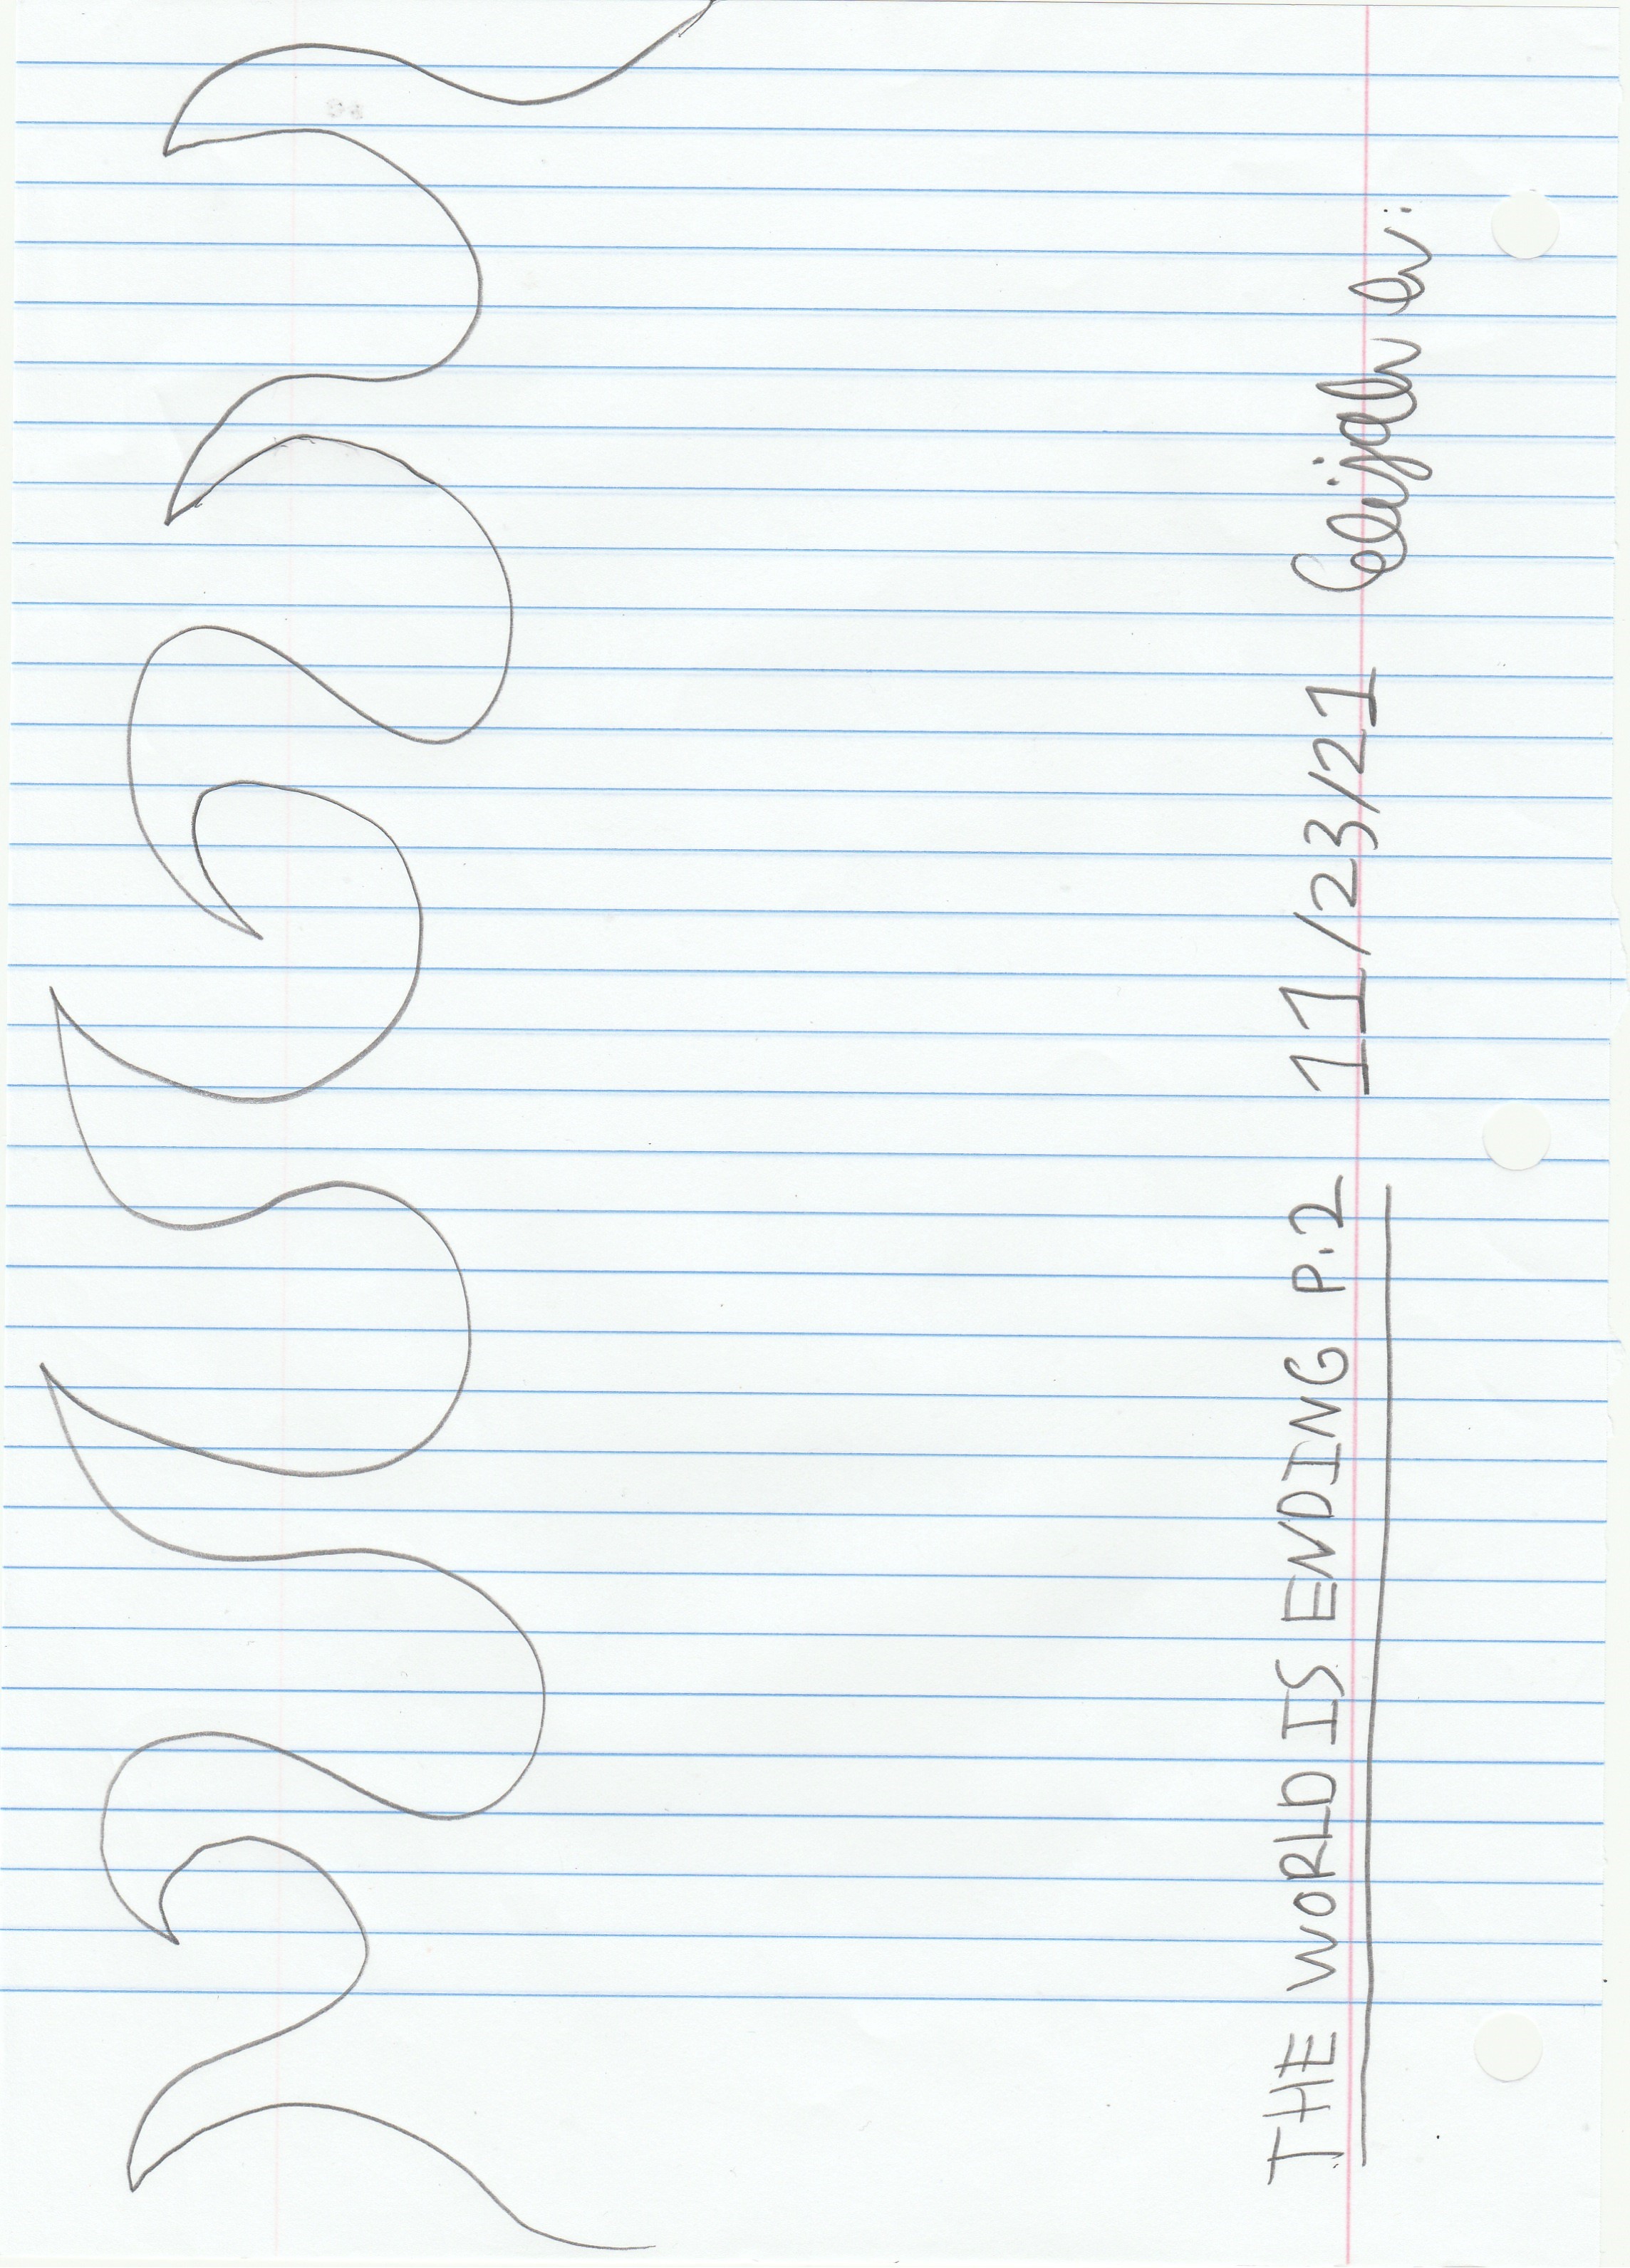 THE WORLD IS ENDING P.2 11/23/21 Elijah